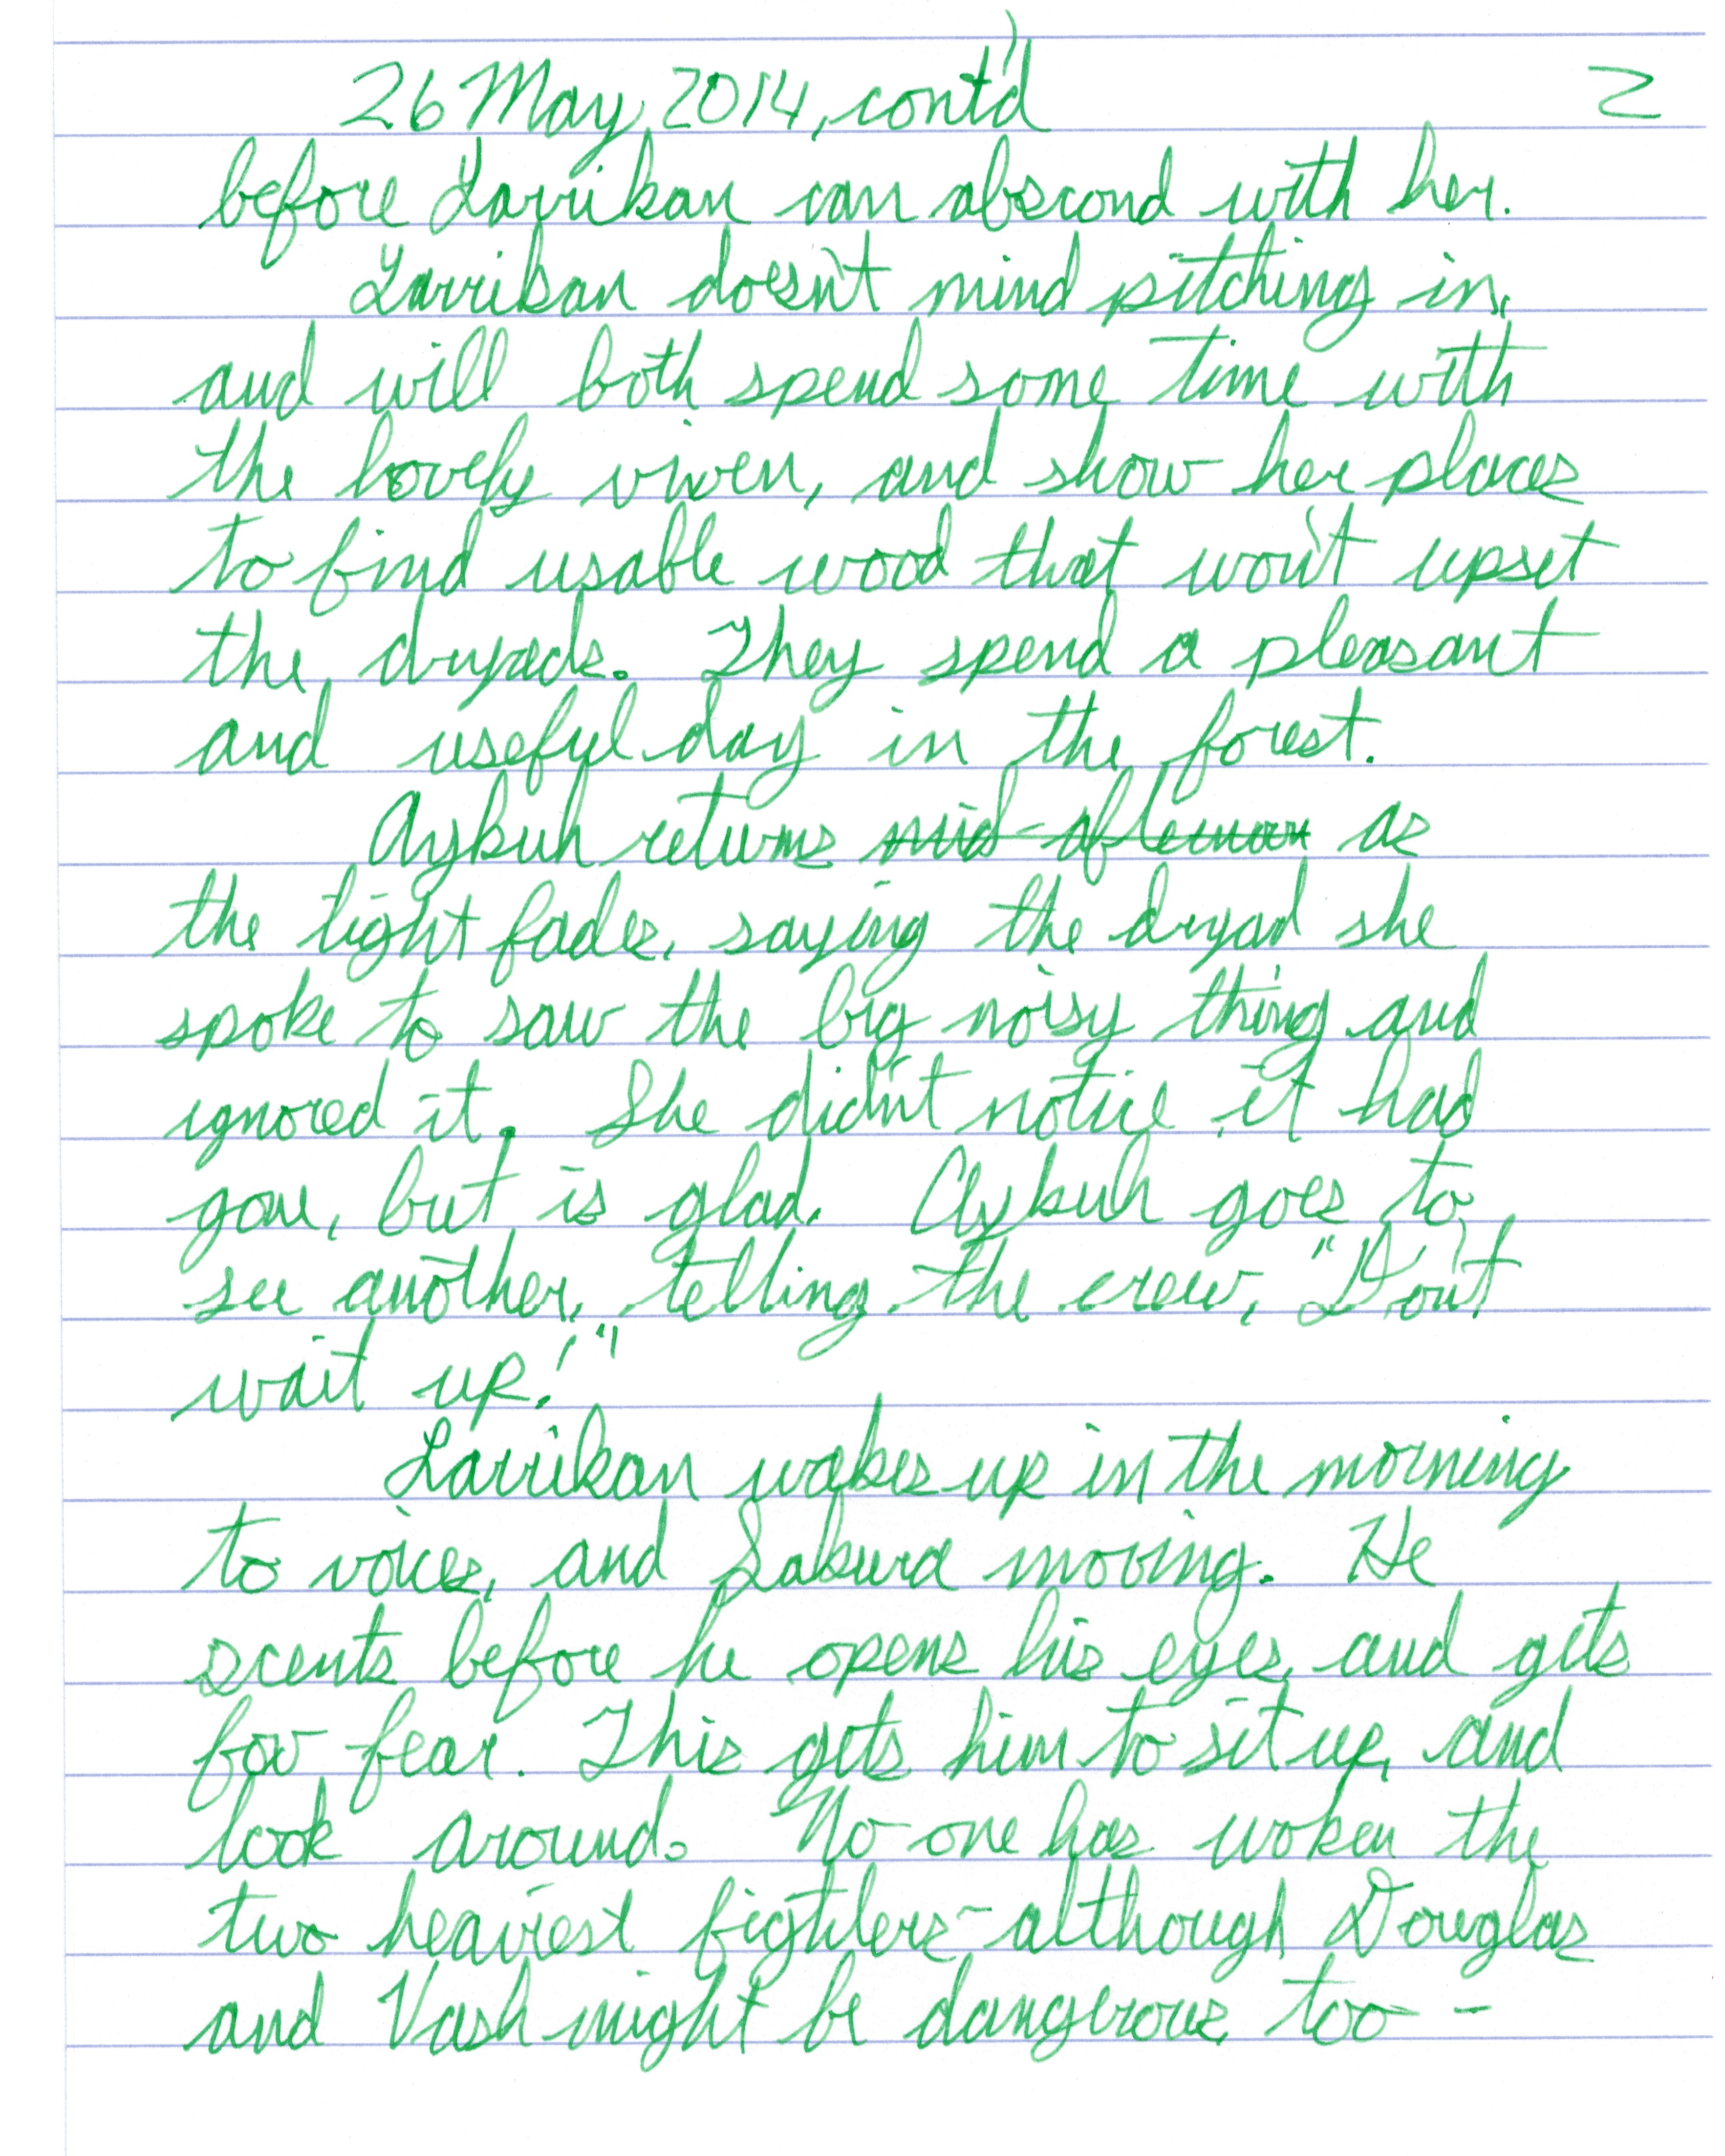 26 May, 2014, cont'd 2
before Larrikan can abscond with her.
Larrikan doesn't mind pitching in,
and will both spend some time with
the lovely vixen, and show her places
to find usable wood that won't upset
the dryads. They spend a pleasant
and useful day in the forest.
Aykuh returns mid-afternoon as
the light fades, saying the dryad she
spoke to saw the big noisy thing and
ignored it. She didn't notice it had
gone, but is glad. Aykuh goes to
see another, telling the crew, "Don't
wait up!"
Larrikan wakes up in the morning
to voices, and Sakura moving. He
scents before he opens his eyes, and gets
fear. This gets him to sit up, and
look around. No one has woken the
two heaviest fighters - although Douglas
and Vash might be dangerous, too -